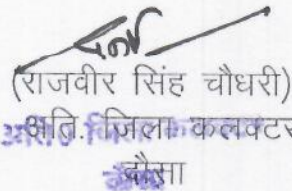 (राजवीर सिंह चौधरी)
अति. जिला कलक्टर
दौसा